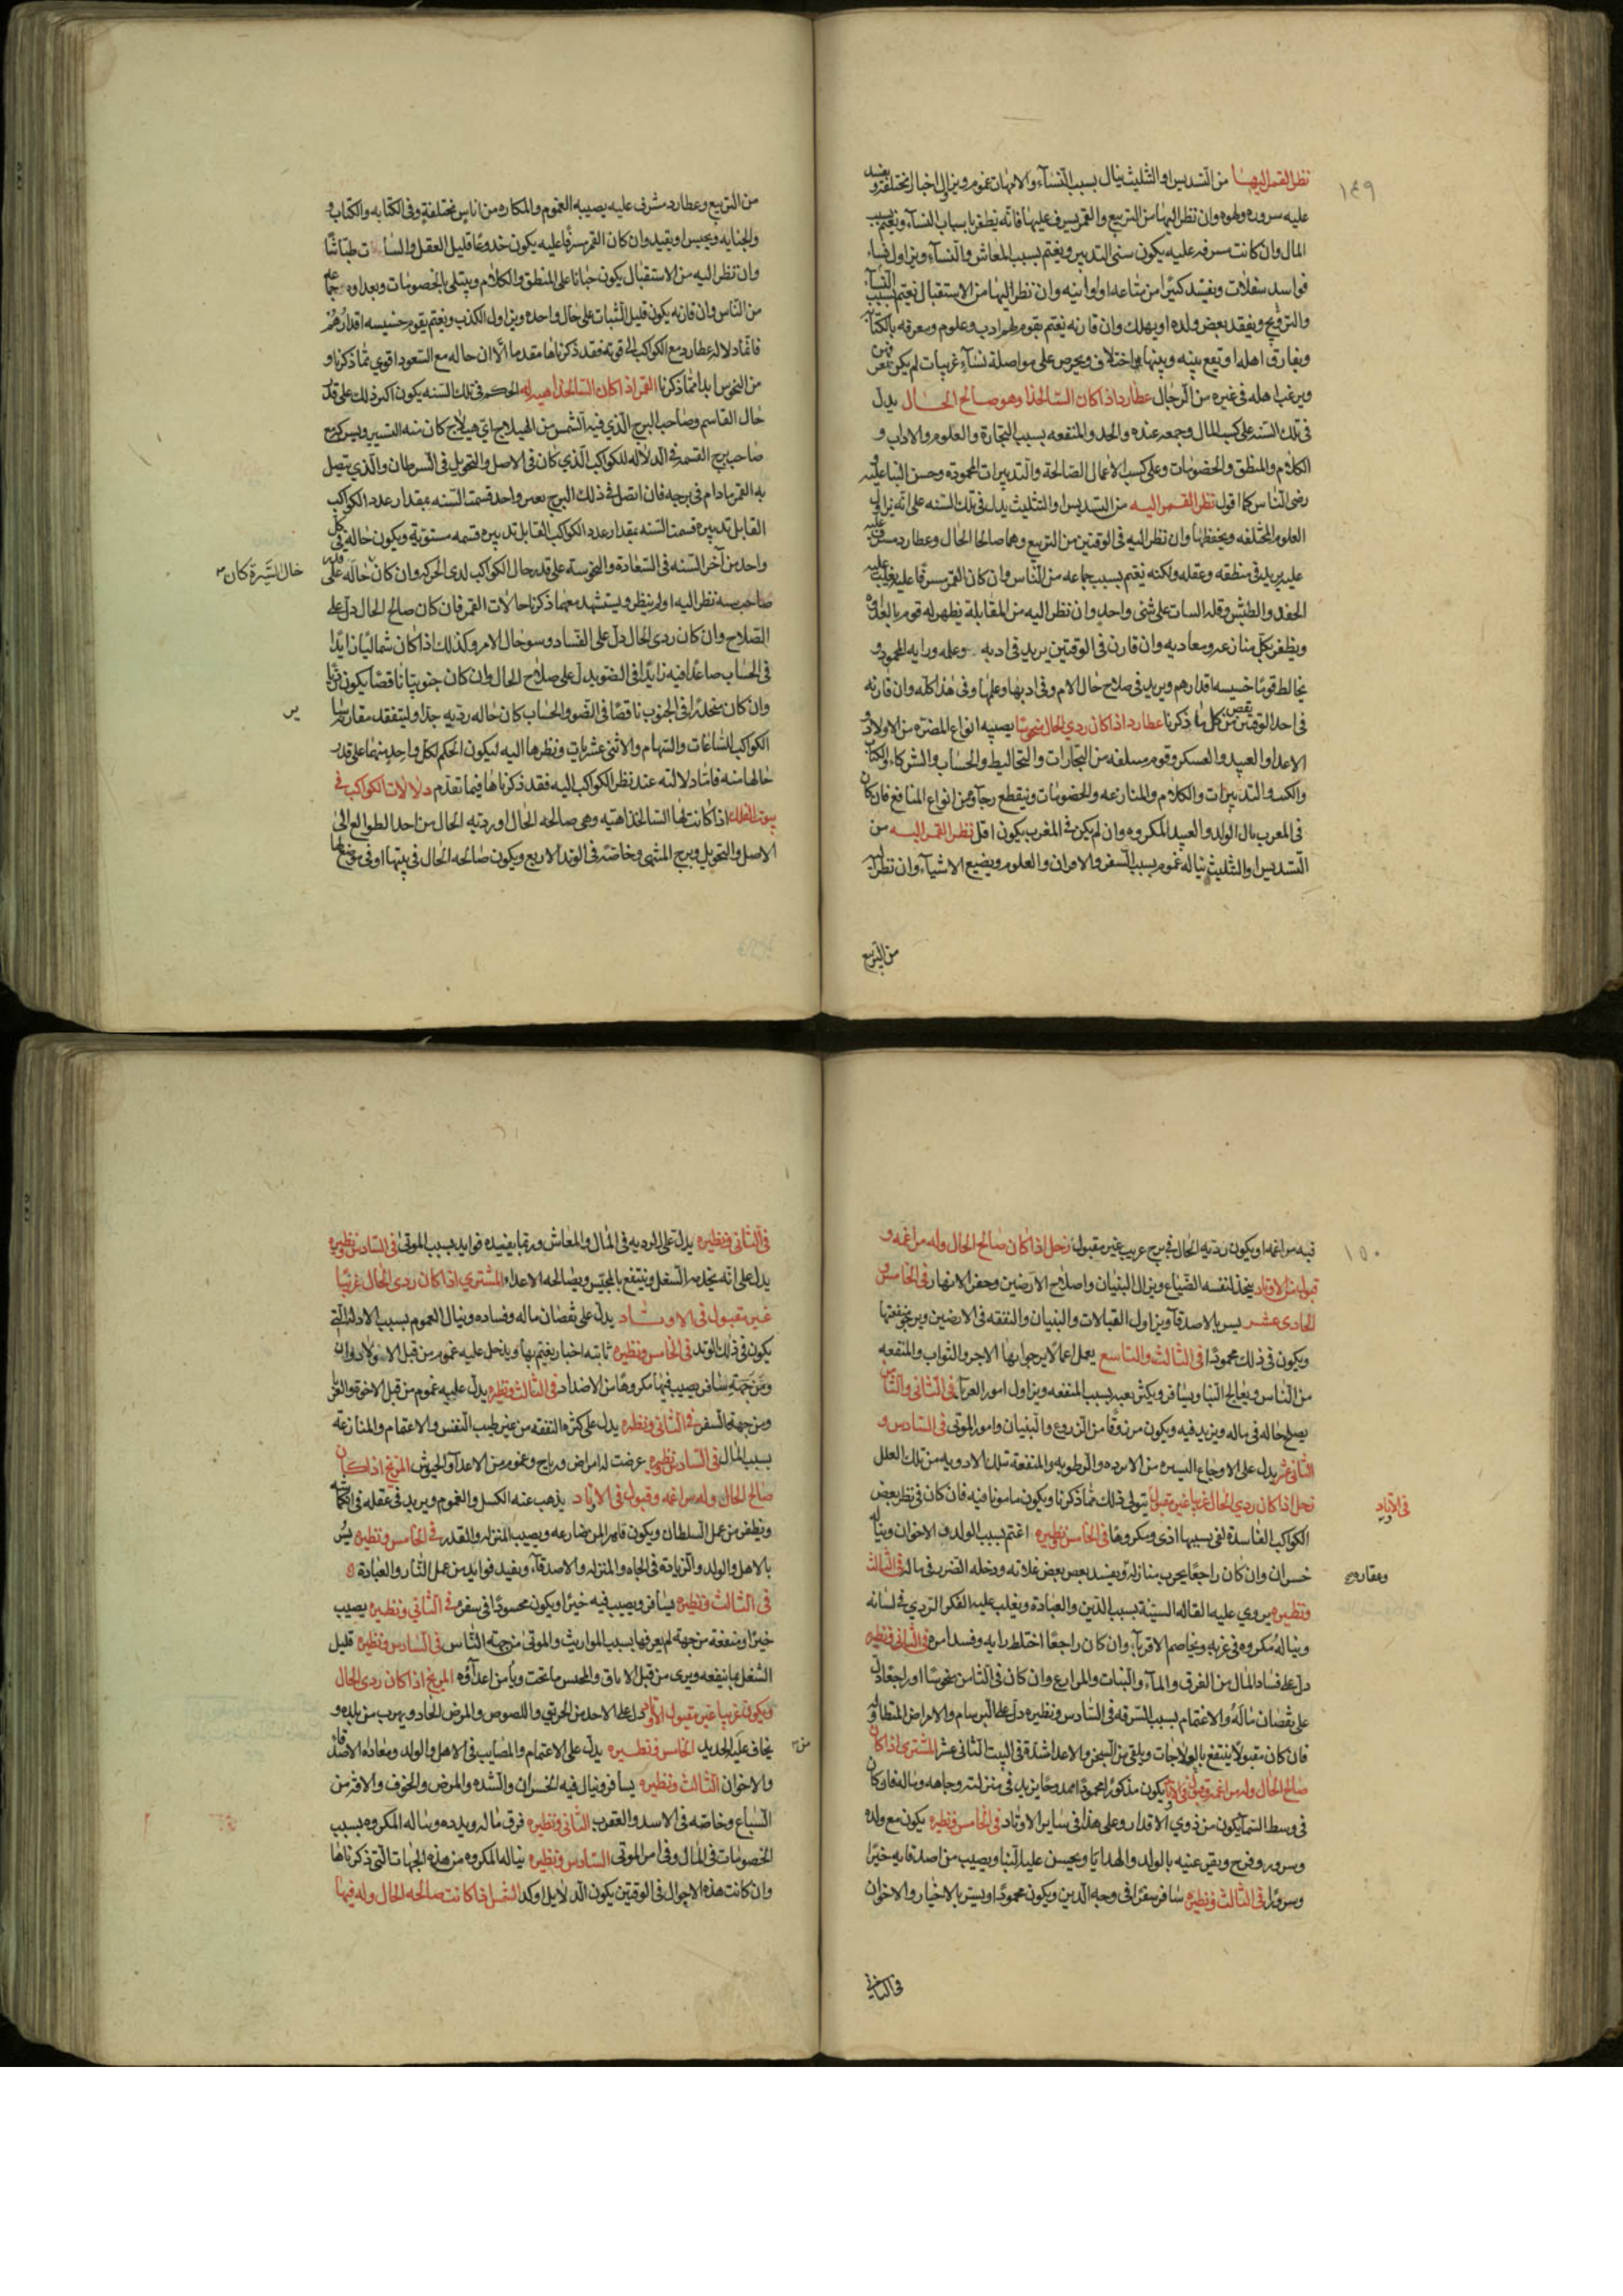 ١٤٩
نظر القمر اليها من التسديس او التثليث ينال بسبب النساء والامهات غموم ويزال اخبار مختلفة و
عليه سروره ولهوه وان نظر اليها من التربيع والقمر يسرف عليها فانه يظفر باسباب النساء ويغتم بسبب
المال وان كانت مسرفه عليه يكون سئ التدبير ويغتم بسبب المعاش والنساء ويزاول نساء
فواسد سفلات ويفسد كثيرا من متاعه او اوانيه وان نظر اليها من الاستقبال يغتم بسبب النساء
والتزويج ويفقد بعض ولده او يهلك وان قارنه يغتم بقوم لهم ادب وعلوم ومعرفه بالكتابة
ويفارق اهله او تقع بينه وبينها اختلاف ويحرص على مواصلة نساء غريبات لم يكن
ويرغب اهله في غيره من الرجال عطارد اذا كان السالخذاه وهو صالح الحال يدل
في تلك السنه على كسب المال وجمعه عنده والجد والمنفعه بسبب التجارة والعلوم والاداب و
الكلام والمنطق والخصومات وعلى كسب الاعمال الصالحة والتدبيرات المحمودة وحسن الثنا عليه و
رضى الناس كما اقول نظر القمر اليه من التسديس او التثليث يدل في تلك السنه على انه يزاول
العلوم المختلفه ويحفظها وان نظر اليه في الوقتين من التربيع وهما صالحا الحال وعطارد مسرف عليه
عليه يزيد في منطقه وعقله ولكنه يغتم بسبب جماعه من الناس وان كان القمر مسرفا عليه يغلب عليه
الحقد والطيش وقله السات على شئ واحد وان نظر اليه من المقابلة يظهر له قوم بالعداوه
ويظفر بكل من ان عدو معاديه وان قارن في الوقتين يزيد في ادبه وعلمه ورايه المحمود و
يخالط قوما خسيسه اقدارهم ويزيد في صلاح حال الام وفي ادبها وعلمها وفي هذا كله وان قارنه
في احد الوقتين نقص من كل ما ذكرنا عطارد اذا كان ردي الحال منحوسا يصيبه انواع المضره من الاولاد و
الاعدا والعبيد والعسكر وقوم سفله من التجارات والتخاليط والحساب والشركاء والكتاب
والكسب والتدبيرات والكلام والمنازعه والخصومات وينقطع رجاؤه من انواع المنافع فان كان
في المغرب نال الولد والعبيد المكروه وان لم يكن في المغرب يكون اقل نظر القمر اليه من
التسديس او التثليث يناله غموم بسبب السفر والاقران والعلوم ويضيع الاشياء وان نظر اليه
من التربيع
من التربيع وعطارد مشرف عليه يصيبه الغموم والمكاره من اناس مختلفة وفي الكتابه والكتاب و
والجنايه ويحبس او يقيد وان كان القمر مسرفا عليه يكون خدوعا قليل العقل والسات طياشا
وان نظر اليه من الاستقبال يكون جبانا على المنطق والكلام ويبتلى بالخصومات وبعداوه جماعه
من الناس وان قارنه يكون قليل الثبات على حال واحده ويزاول الكذب ويغتم بقوم خسيسه اقدارهم
فاما دلاله عطارد مع الكواكب الى قوته فقد ذكرناها مقدما الا ان حاله مع السعود اقوى مما ذكرنا و
من النحوس ابدا مما ذكرنا القمر اذا كان السالخذاهيه له الحكم في تلك السنه يكون اكثر ذلك على قدر
حال القاسم وصاحب البرج الذي فيه الشمس من الهيلاج اي هيلاج كان منه التسيير
صاحب برج القسمه في الدلاله للكوكب الذي كان في الاصل والتحويل في السرطان والذي يتصل
به القمر ما دام في برجه فان اتصل في ذلك البرج بغير واحد قسمت السنه بمقدار عدد الكواكب
القابل تدبيره قسمت السنه بمقدار عدد الكواكب القابل تدبيره قسمه مستوية ويكون حاله في كل
واحد من آخر السنه في السعادة والنحوسة على قدر حال الكواكب لدى الحركه وان كان حاله على
حال المسرة كان
صاحب سه نظر اليه او لم ينظر ويستشهد معهما ذكرنا حالات القمر فان كان صالح الحال دل على
الصلاح وان كان ردى الحال دل على الفساد وسوحال الامر وكذلك اذا كان شماليا زايدا
في الحساب صاعدا فيه زايدا في الضو يدل على صلاح الحال وان كان جنوبيا ناقصا يكون
وان كان منحدرا في الجنوب ناقصا في الضو والحساب كان حاله رديه جدا وليتفقد مقارنه
الكواكب للشاعات والسهام والاثنى عشريات ونظرها اليه ليكون الحكم لكل واحد منهما على قدر
حالها منه فاما دلالته عند نظر الكواكب اليه فقد ذكرناها فيما تقدم دلالات الكواكب في
بيوت الفلك اذا كانت لها السالخذاهيه وهي صالحه الحال او رديه الحال من احد الطوالع الى
الاصل والتحويل وبرج المنتهى وخاصة في الوتد الاربع ويكون صالحه الحال في بيتها او في موضع لها
١٥٠
فيه مزاعمه او يكون رديه الحال في برج غريب غير مقبول زحل اذا كان صالح الحال وله مزاعمه و
قبول من الاوتاد يتخذ لنفسه الضياع ويزال البنيان واصلاح الارضين وحفر الانهار في الخامس و
الحادي عشر يسر بالاصدقاء ويزاول القبالات والبنيان والنفقه في الارضين ويرجو منفعتها
ويكون في ذلك محمودا في الثالث والتاسع يعمل اعمالا يرجوا بها الاجر والثواب والمنفعه
من الناس ويعالج النبا ويسافر ويكثر تعبه بسبب المنفعه ويزاول امور الغربا في الثاني والثامن
يصلح حاله في ماله ويزيد فيه ويكون مرزوقا من الزروع والبنيان وامور الموتى في السادس و
الثاني عشر يدل على الاوجاع اليسيره من الابرده والرطوبه والمنفعة بتلك الادويه من تلك العلل
زحل اذا كان ردي الحال غريبا غير مقبول يتولى ذلك مما ذكرنا ويكون مامونا فيه فان كان في نظر بعض
في الاوتاد
الكواكب الفاسدة لقى بسببها اذى ومكروها في الخامس ونظيره اغتم بسبب الولد والاخوان ويناله
خسران وان كان راجعا يخرب منازله ويفسد بعض بعض غلاته ودخله الضرر في ماله في الثالث
وعقاره
ونظيره يروي عليه القاله السيئة بسبب الدين والعبادة ويغلب عليه الفكر الردي في لسانه
ويناله مكروه في غربه ويخاصم الاقرباء وان كان راجعا اختلط رايه وفسد امره في الثاني ونظيره
دل على فساد المال من الغرق والماء والنبات والمزارع وان كان في الثامن منحوسا او راجعا دل
على نقصان ماله والاغتمام بسبب السرقه في السادس ونظيره دل على البرسام والامراض المتطاوله و
فان كان مقبولا ينتفع بالعلاجات ويلقى من السجن والاعدا شدة في البيت الثاني عشر المشتري اذا كان
صالح الحال وله مزاعمه وقبول في الاوتاد يكون مذكورا محمودا ممدوحا يزيد في منزلته وجاهه وماله فان كان
في وسط السما يكون من ذوي الاقدار وعلى هذا في ساير الاوتاد في الخامس ونظيره يكون مع ولده
وسرور وفرح ويقر عنيه بالولد والهدايا ويحسن عليه الثنا ويصيب من اصدقايه خيرا
وسرورا في الثالث ونظيره سافر سفرا في وجه الدين ويكون محمودا ويسر بالاخيار والاخوان
في الثاني
في الثاني ونظيره يدل على الرديه في المال والمعاش وربما يفيده فوايد بسبب الموتى في السادس ونظيره
يدل على انه يخدمه السفل وينتفع بالحبس ويصالحه الاعداء المشتري اذا كان ردي الحال غريبا
غير مقبول في الاوتاد يدل على نقصان ماله وفساده وينال الغموم بسبب الادله التي
يكون في ذلك الوتد في الخامس ونظيره ثابته اخبار يغتم بها ويدخل عليه غموم من قبل الاولاد وان
ومن جهة سافر يصيب فيها مكروها من الاضداد في الثالث ونظيره يدل عليه غموم من قبل الاخوة والقر
ومن جهة السفر في الثاني ونظيره يدل على كثرة النفقه من غير طيب النفس والاغتمام والمنازعة
بسبب المال في السادس ونظيره عرضت له امراض ورياح وغموم من الاعداء والجيوش المريخ اذا كان
صالح الحال وله مزاعمه وقبول في الاوتاد يذهب عنه الكسل والغموم ويزيد في عقله
ويظفر من عمل السلطان ويكون قاهرا لمن ضارعه ويصيب المنزله والقدر في الخامس ونظيره يسر
بالاهل والولد والزيادة في الجاه والمنزله والاصدقاء ويفيد فوايد من عمل النار والعبادة
في الثالث ونظيره يسافر ويصيب فيه خيرا ويكون محسودا في سفره في الثاني ونظيره يصيب
خيرا ومنفعة من جهة لم يعرفها بسبب المواريث والموتى من جهة الناس في السادس ونظيره قليل
الشغل بما ينفعه ويرى من قبل الاباق والحبس ما يحب ويامن اعداؤه المريخ اذا كان ردى الحال
ويكون غريبا غير مقبول الاوتاد دل على الاحد من الحريق واللصوص والمرض الحاد ويهرب من بلده و
يخاف عليه الحديد الخامس ونظيره يدل على الاغتمام والمصايب في الاهل والولد ومعاداه الاصدقاء
من
والاخوان الثالث ونظيره يسافر وينال فيه الخسران والشده والمرض والخوف والافزمن
السباع وخاصة في الاسد والعقرب الثاني ونظيره فرق ماله وبدده ويناله المكروه بسبب
الخصومات في المال وفي امر الموتى السادس ونظيره يناله المكروه من هذه الجهات التي ذكرناها
وان كانت هذه الاحوال في الوقتين يكون الدلايل اوكد الشمس اذا كانت صالحه الحال وله فيها